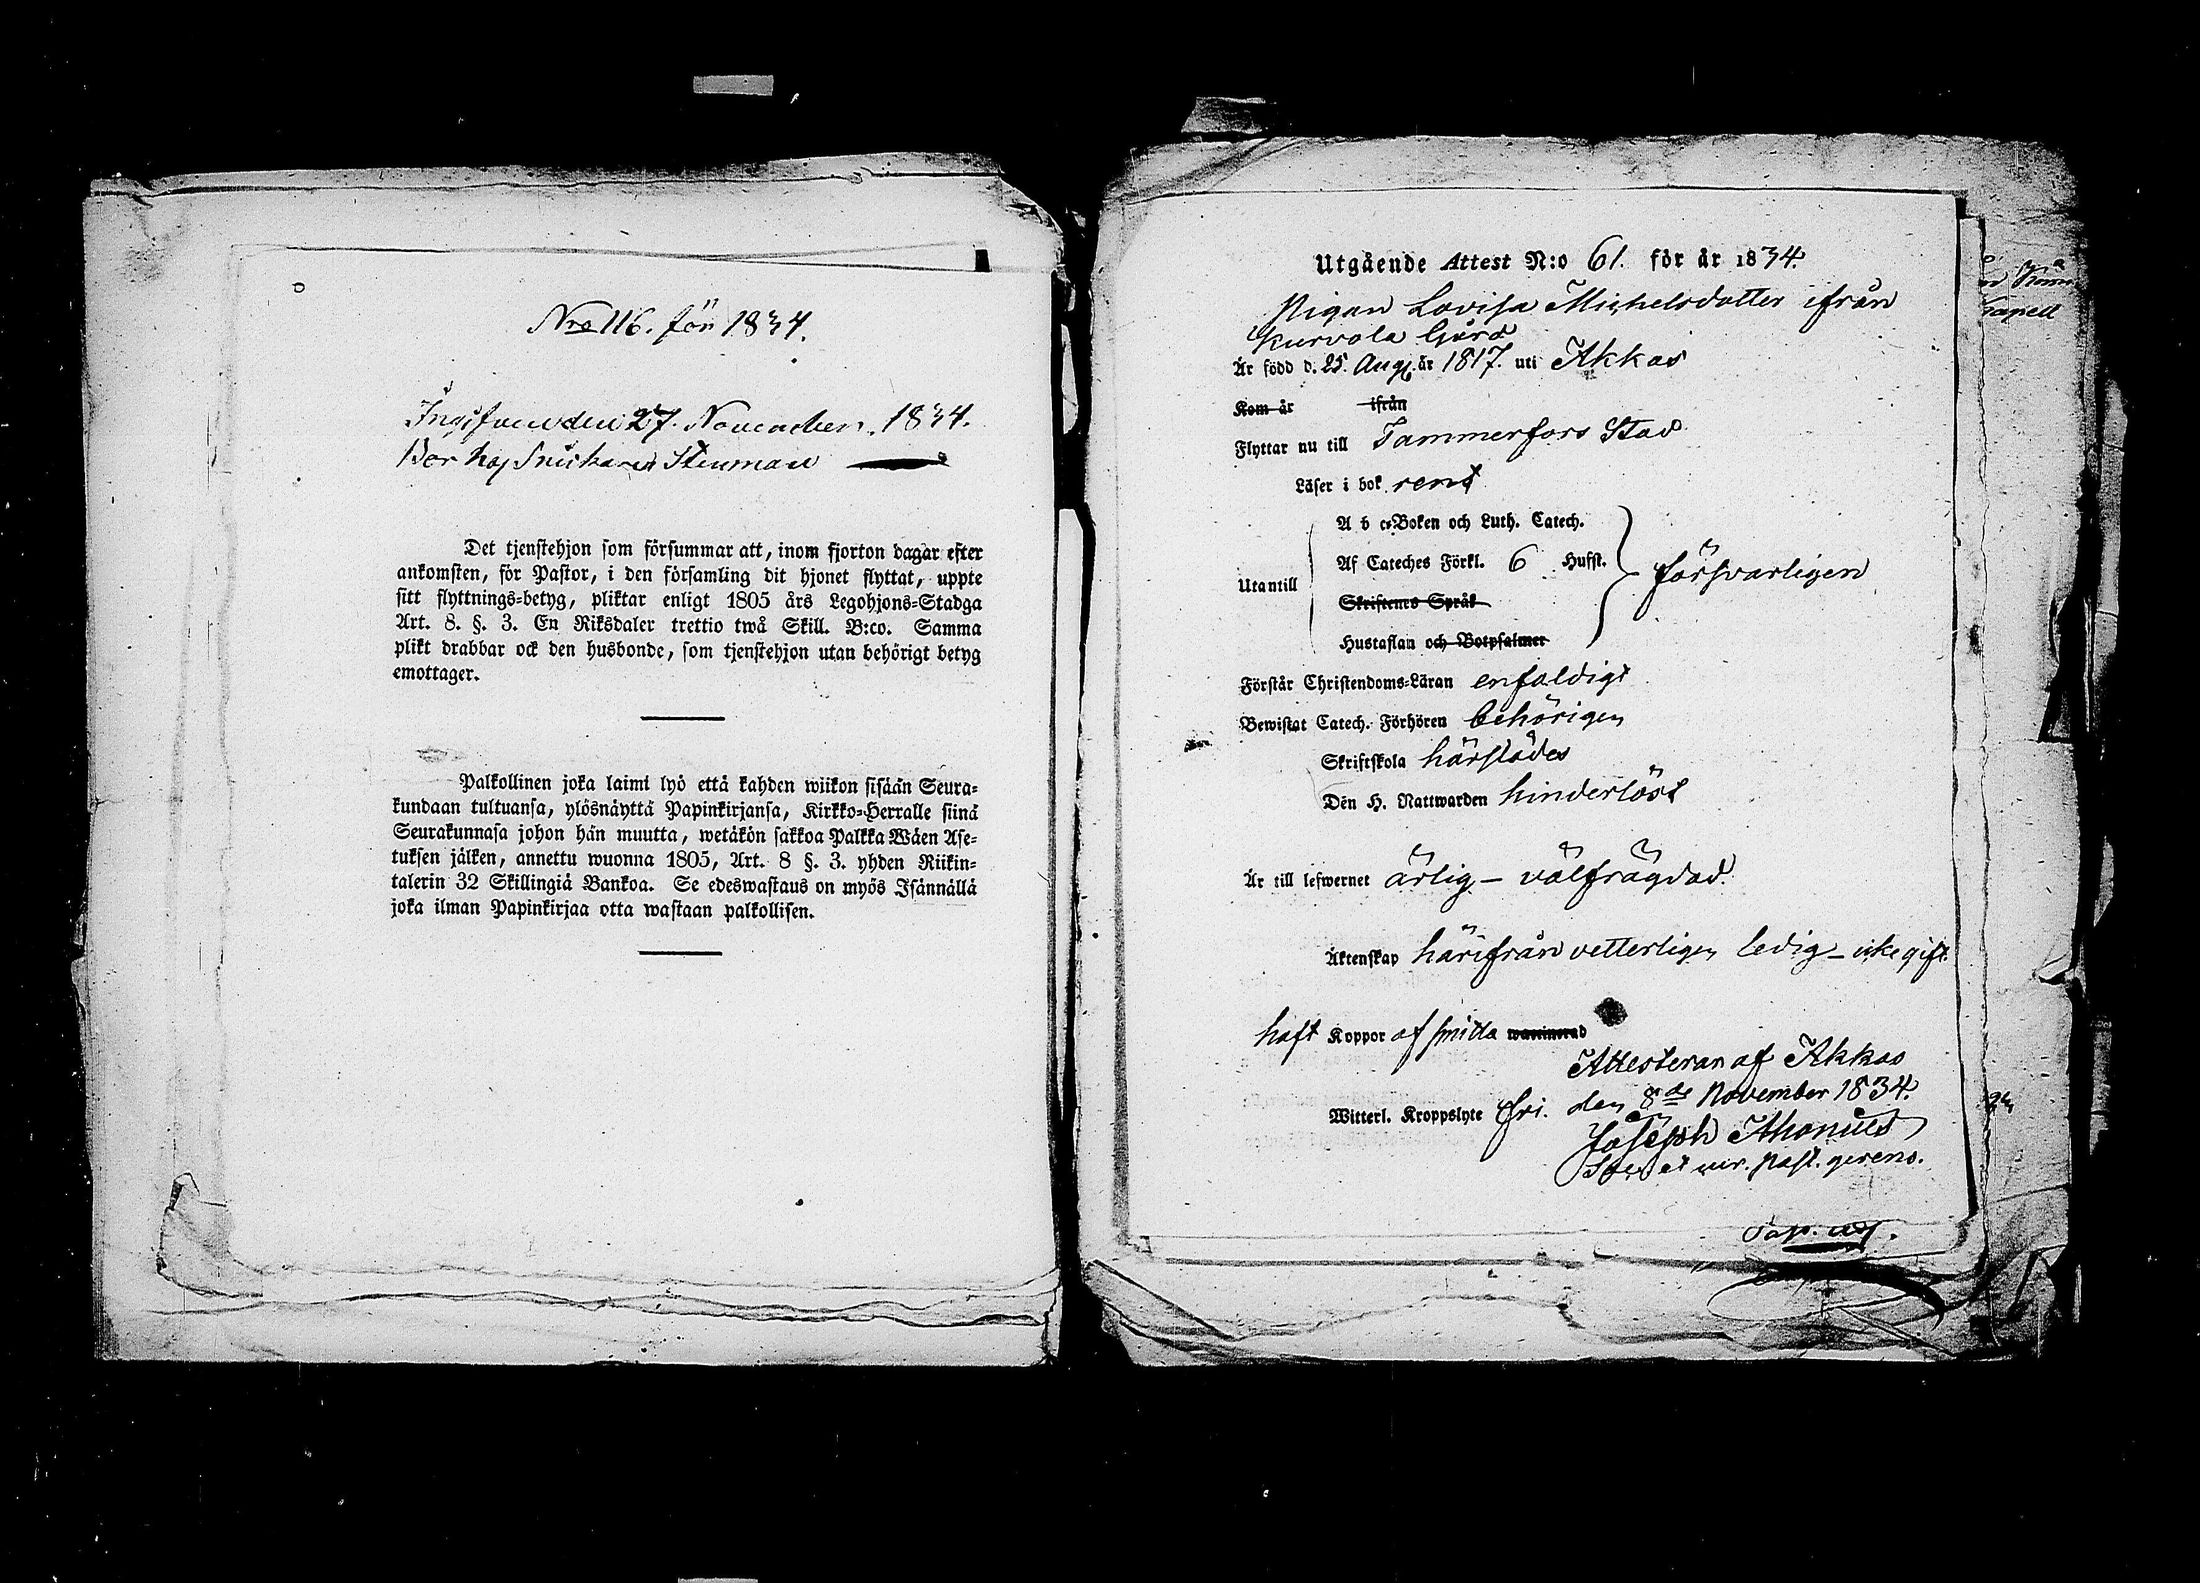 Nro 116. för 1834.
Ingifven den 27. November. 1834.
Bor hos Snickaren Stenman
Det tjenstehjon som försummar att, inom fjorton dagar efter
ankomsten, för Pastor, i den församling dit hjonet flyttat, uppte
sitt flyttnings-betyg, pliktar enligt 1805 års Legohjons-Stadga
Art. 8. §. 3. En Riksdaler trettio twå Skill. B:co. Samma
plikt drabbar ock den husbonde, som tjenstehjon utan behörigt betyg
emottager.
Palkollinen joka laimi lyö että kahden wiikon sisään Seura-
kundaan tultuansa, ylösnäyttä Papinkirjansa, Kirkko-Herralle siinä
Seurakunnasa johon hän muutta, wetäkön sakkoa Palkka Wäen Ase-
tuksen jälken, annettu wuonna 1805, Art. 8 §. 3. yhden Riikin-
talerin 32 Skillingiä Bankoa. Se edeswastaus on myös Isännällä
joka ilman Papinkirjaa otta wastaan palkollisen.
Utgående Attest N:o 61. för år 1834.
Pigan Lovisa Michelsdotter ifrån
Kurvola Gård
Är född d. 25. Aug. år 1817. uti Akkas
Kom år ifrån
Flyttar nu till Tammerfors Stad
Läser i bok rent
A b c-Boken och Luth. Catech.
Af Cateches Förkl. 6 Hufst.
Utantill försvarligen
Skriftenes Språk
Hustaflan och Botpsalmer
Förstår Christendoms-Läran enfaldigt
Bewistat Catech. Förhören behörigen
Skriftskola härstädes
Den H. Nattwarden hinderlöst
Är till lefwernet ärlig - välfrägdad.
Äktenskap härifrån vetterligen ledig - icke gift.
haft Koppor af smitta waccinerad
Attesterar af Akkas
Witterl. Kroppslyte fri. den 8de November 1834.
Joseph
et vir. past. gerens.